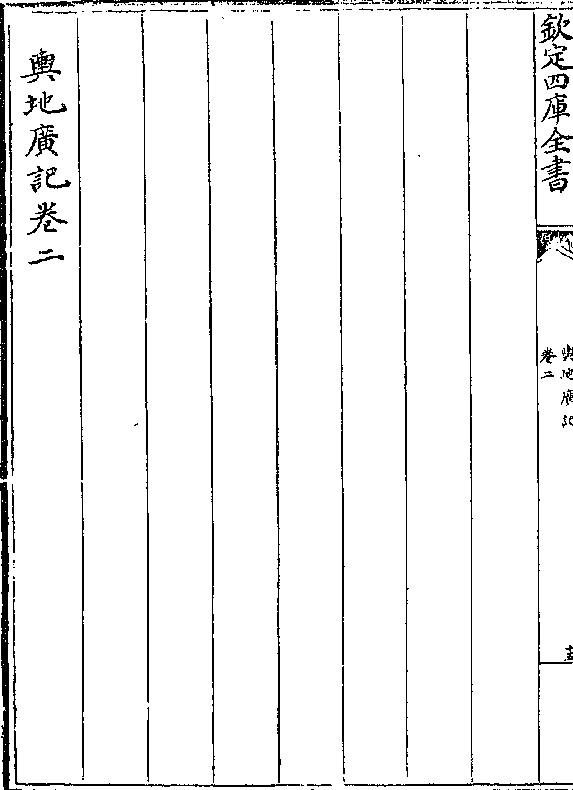 欽定四庫全書
輿地廣記
卷二
輿地廣記卷二